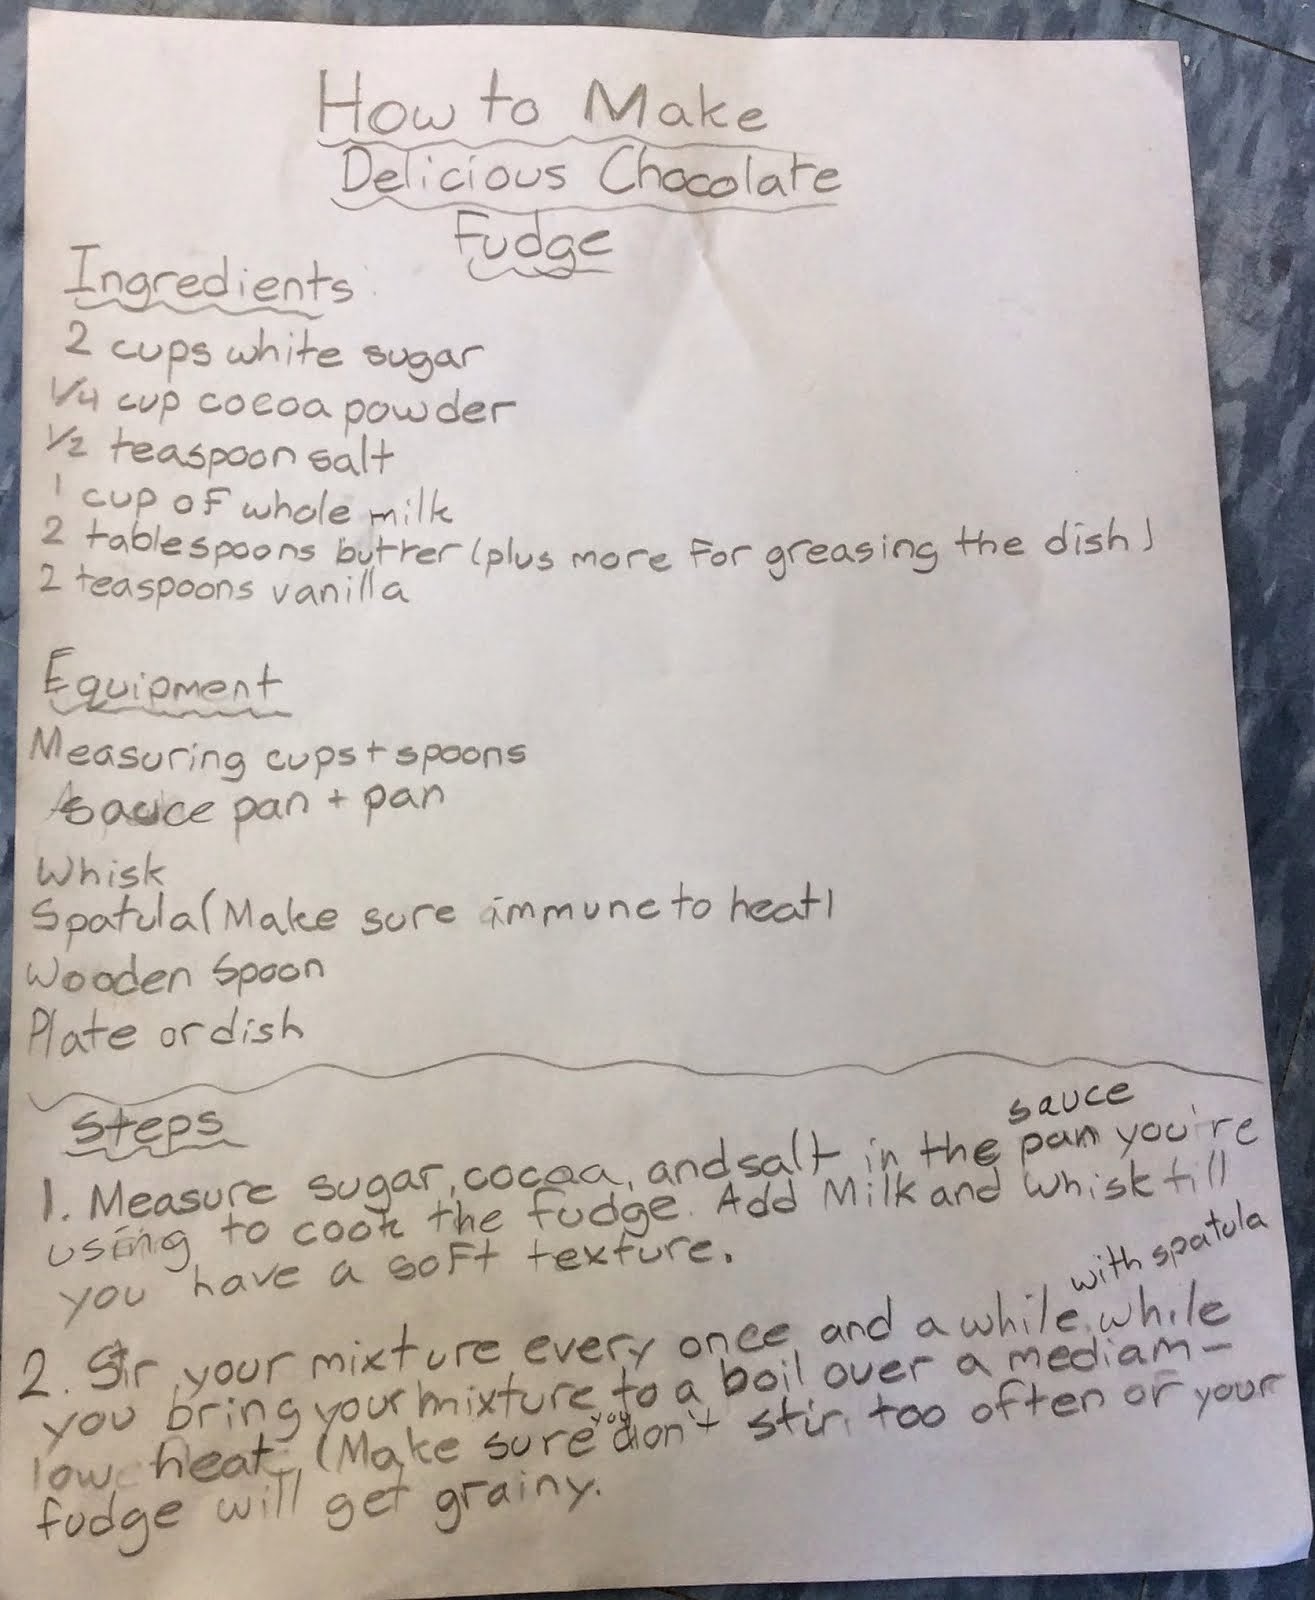 How to Make
Delicious Chocolate
Fudge
Ingredients
2 cups white sugar
1/4 cup cocoa powder
1/2 teaspoon salt
1 cup of whole milk
2 tablespoons butter (plus more for greasing the dish)
2 teaspoons vanilla
Equipment
Measuring cups + spoons
sauce pan + pan
Whisk
Spatula (Make sure immune to heat)
Wooden Spoon
Plate or dish
Steps
sauce
1. Measure sugar, cocoa, and salt in the pan you're
using to cook the fudge. Add Milk and whisk till
you have a soft texture.
with spatula
2. Stir your mixture every once and a while, while
you bring your mixture to a boil over a mediam-
low heat. (Make sure you don't stir too often or your
fudge will get grainy.